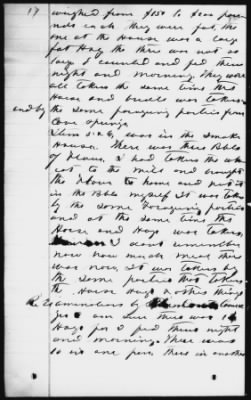 17 weighed from $150 to $200 pou
nds each they were fat, the
one at the House was a large
fat Hog the there was not so
large I counted and fed them
night and morning. They were
all taken the same time the
Horse and bridle was taken
and by the same foraging parties from
Cave Springs
Item 5 & 6, was in the Smoke
House. There was three Bbls
of Flour, I had taken the wh
eat to the mill and brought
the Flour to Home and put it
in the Bbls myself It was taken
by the same Foraging parties
and at the same time the
Horse and Hogs was taken,
I dont remember
now how much meal there
was now, It was taken by
the same parties that taken
the Horse Hogs & other things
Re Examination by Counsel
Yes I am Sure there was 14
Hogs for I fed them night
and morning. There was
10 in one pen there in another